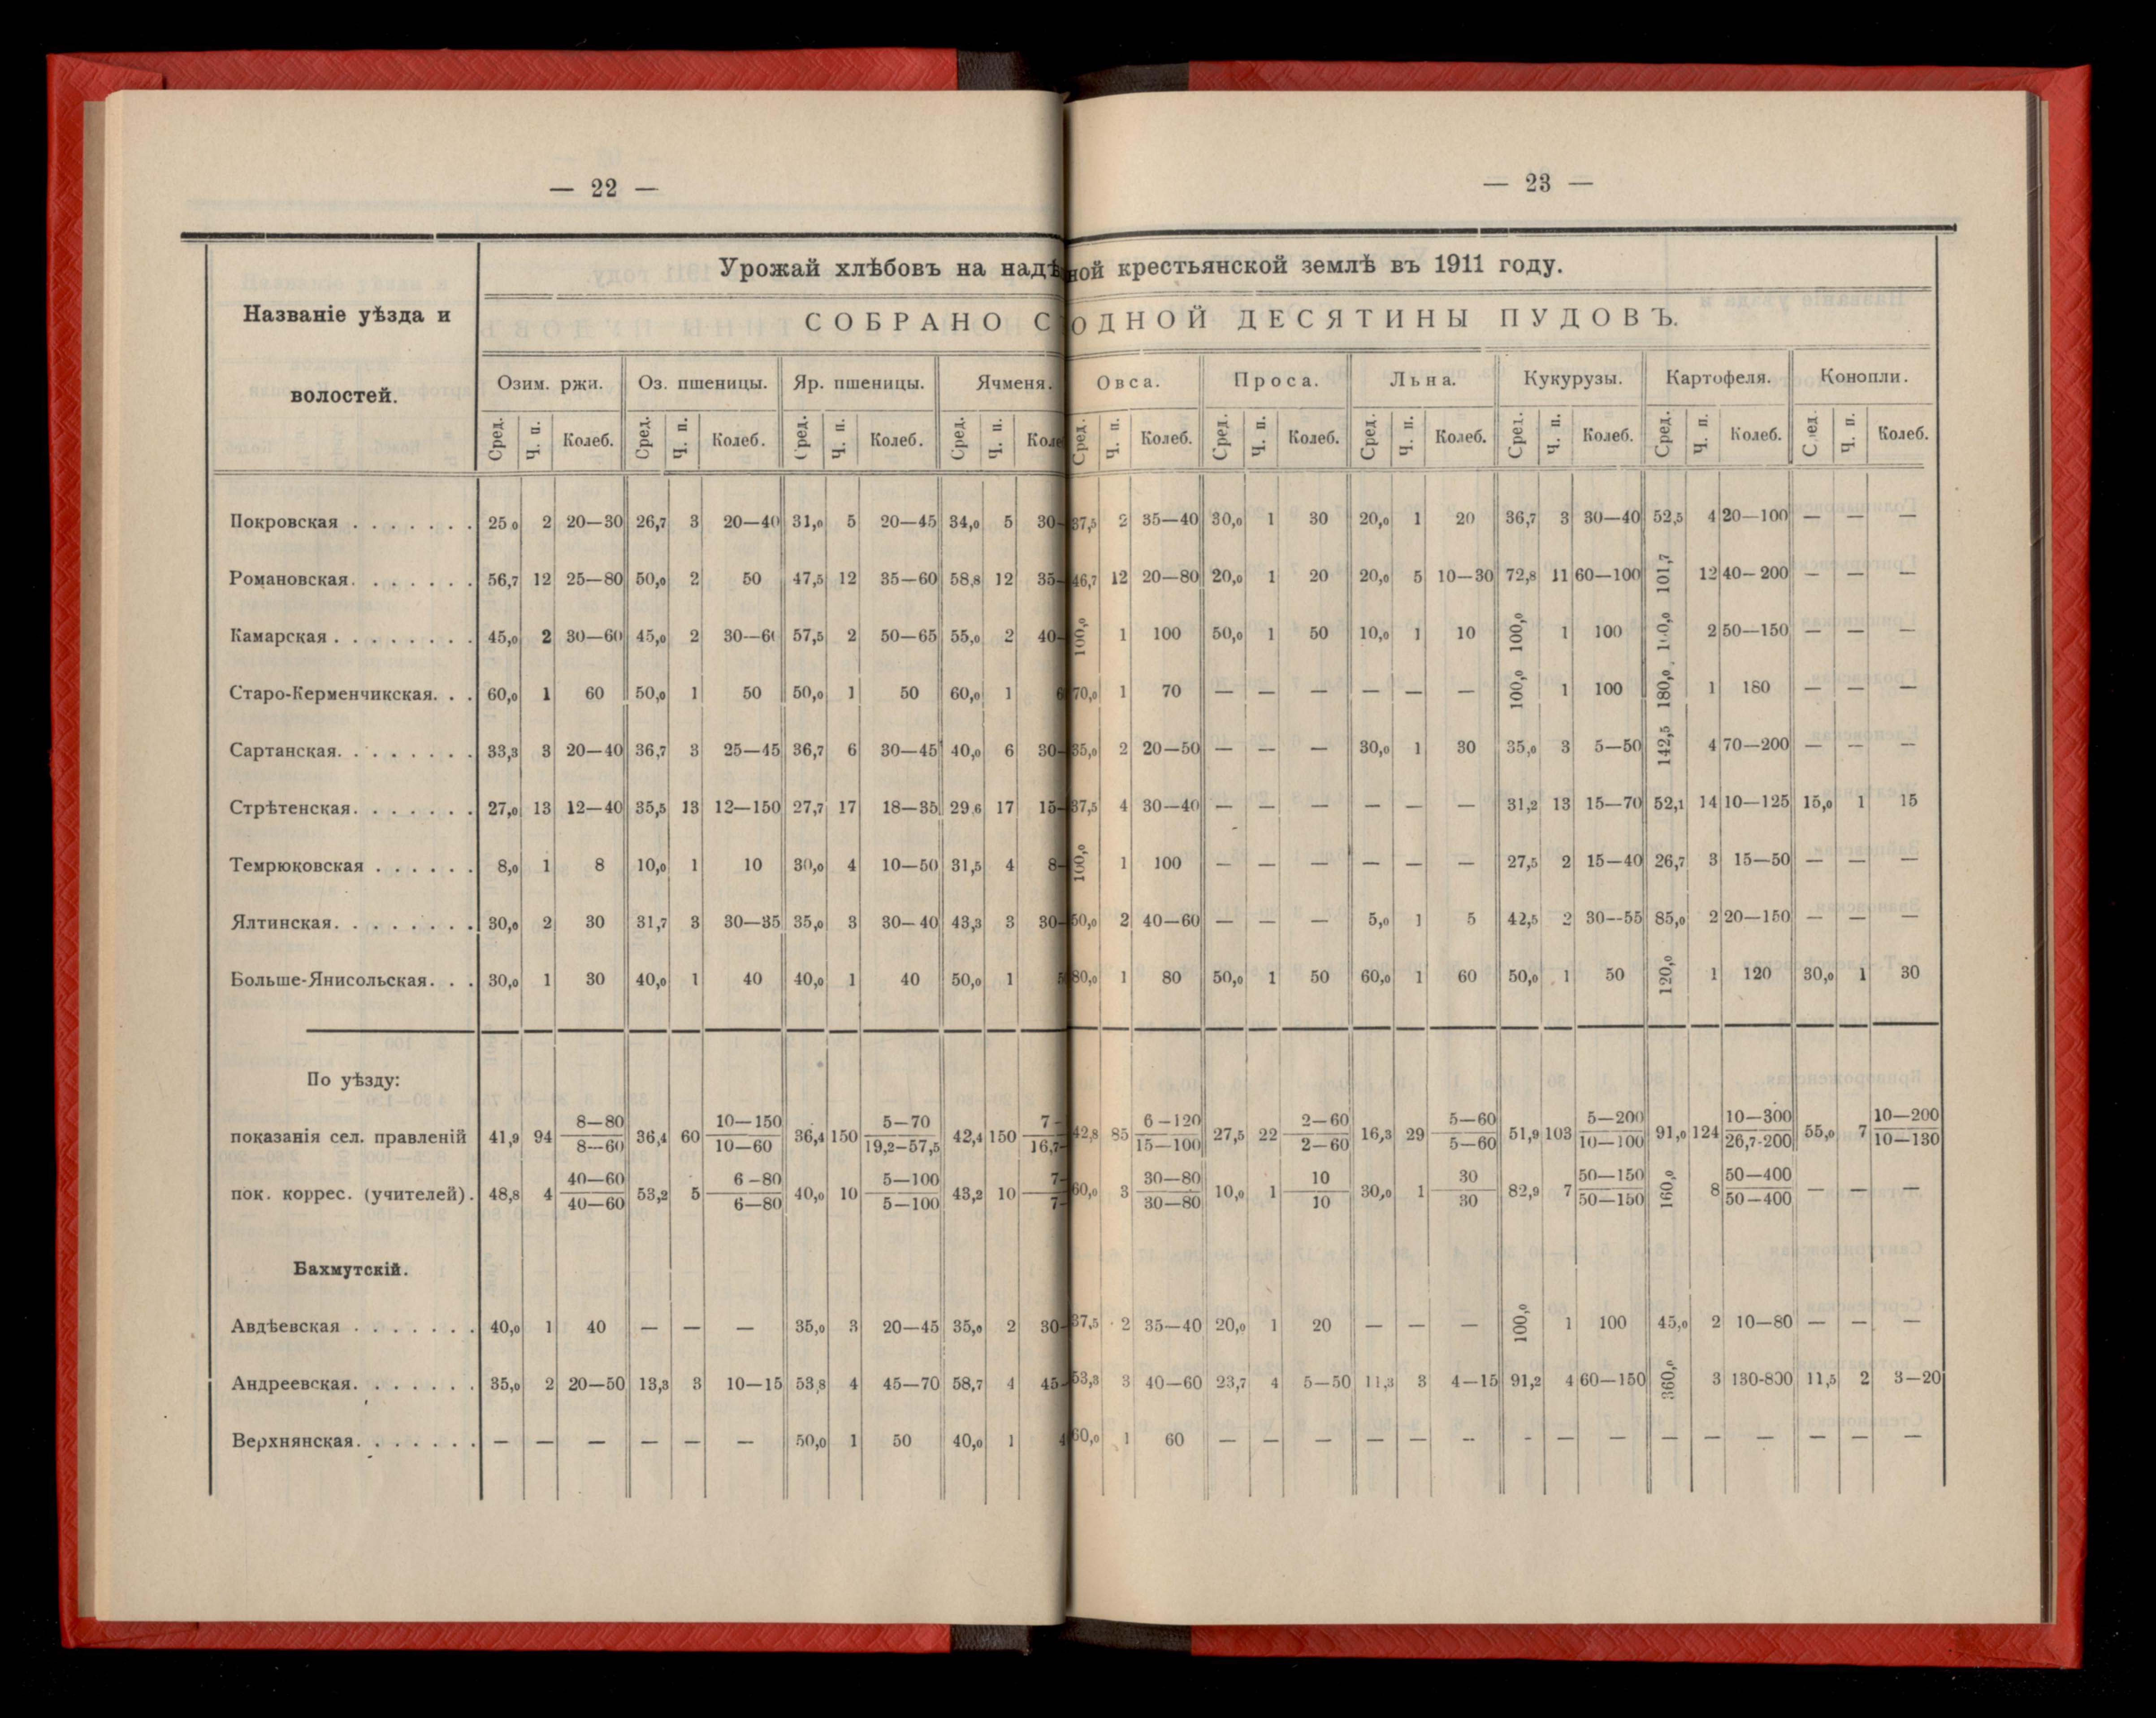 — 22 —
Названіе уѣзда и
волостей.
Урожай хлѣбовъ на надѣ
СОБРАНО С
Озим. ржи. Оз. пшеницы. Яр. пшеницы. Ячменя.
Сред. Ч. п. Колеб. Сред. Ч. п. Колеб. Сред. Ч. п. Колеб. Сред. Ч. п. Колеб
Покровская . . . . . . . 25,0 2 20—30 26,7 3 20—40 31,0 5 20—45 34,0 5 30—
Романовская. . . . . . . 56,7 12 25—80 50,0 2 50 47,5 12 35—60 58,8 12 35—
Камарская . . . . . . . . 45,0 2 30—60 45,0 2 30—60 57,5 2 50—65 55,0 2 40—
Старо-Керменчикская. . . 60,0 1 60 50,0 1 50 50,0 1 50 60,0 1 6
Сартанская. . . . . . . . 33,3 3 20—40 36,7 3 25—45 36,7 6 30—45 40,0 6 30—
Стрѣтенская. . . . . . . 27,0 13 12—40 35,5 13 12—150 27,7 17 18—35 29,6 17 15—
Темрюковская . . . . . . 8,0 1 8 10,0 1 10 30,0 4 10—50 31,5 4 8—
Ялтинская. . . . . . . . . 30,0 2 30 31,7 3 30—35 35,0 3 30—40 43,3 3 30—
Больше-Янисольская. . . 30,0 1 30 40,0 1 40 40,0 1 40 50,0 1 5
По уѣзду:
8—80 10—150 5—70 7—
показанія сел. правленій 41,9 94 36,4 60 36,4 150 42,4 150
8—60 10—60 19,2—57,5 16,7-
40—60 6—80 5—100 7-
пок. коррес. (учителей). 48,8 4 53,2 5 40,0 10 43,2 10
40—60 6—80 5—100 7-
Бахмутскій.
Авдѣевская . . . . . . . 40,0 1 40 — — — 35,0 3 20—45 35,0 2 30—
Андреевская. . . . . . . 35,0 2 20—50 13,3 3 10—15 53,8 4 45—70 58,7 4 45—
Верхнянская. . . . . . . — — — — — — 50,0 1 50 40,0 1 4
— 23 —
ной крестьянской землѣ въ 1911 году.
ОДНОЙ ДЕСЯТИНЫ ПУДОВЪ.
Овса. Проса. Льна. Кукурузы. Картофеля. Конопли.
Сред. Ч. п. Колеб. Сред. Ч. п. Колеб. Сред. Ч. п. Колеб. Сред. Ч. п. Колеб. Сред. Ч. п. Колеб. Сред. Ч. п. Колеб.
37,5 2 35—40 30,0 1 30 20,0 1 20 36,7 3 30—40 52,5 4 20—100 — — —
46,7 12 20—80 20,0 1 20 20,0 5 10—30 72,8 11 60—100 101,7 12 40—200 — — —
100,0 1 100 50,0 1 50 10,0 1 10 100,0 1 100 100,0 2 50—150 — — —
70,0 1 70 — — — — — — 100,0 1 100 180,0 1 180 — — —
35,0 2 20—50 — — — 30,0 1 30 35,0 3 5—50 142,5 4 70—200 — — —
37,5 4 30—40 — — — — — — 31,2 13 15—70 52,1 14 10—125 15,0 1 15
100,0 1 100 — — — — — — 27,5 2 15—40 26,7 3 15—50 — — —
50,0 2 40—60 — — — 5,0 1 5 42,5 2 30—55 85,0 2 20—150 — — —
80,0 1 80 50,0 1 50 60,0 1 60 50,0 1 50 120,0 1 120 30,0 1 30
6—120 2—60 5—60 5—200 10—300 10—200
42,8 85 27,5 22 16,3 29 51,9 103 91,0 124 55,0 7
15—100 2—60 5—60 10—100 26,7-200 10—130
30—80 10 30 50—150 50—400
60,0 3 10,0 1 30,0 1 82,9 7 160,0 8 — — —
30—80 10 30 50—150 50—400
37,5 2 35—40 20,0 1 20 — — — 100,0 1 100 45,0 2 10—80 — — —
53,3 3 40—60 23,7 4 5—50 11,3 3 4—15 91,2 4 60—150 360,0 3 130-800 11,5 2 3—20
60,0 1 60 — — — — — — - — — — — — — — —